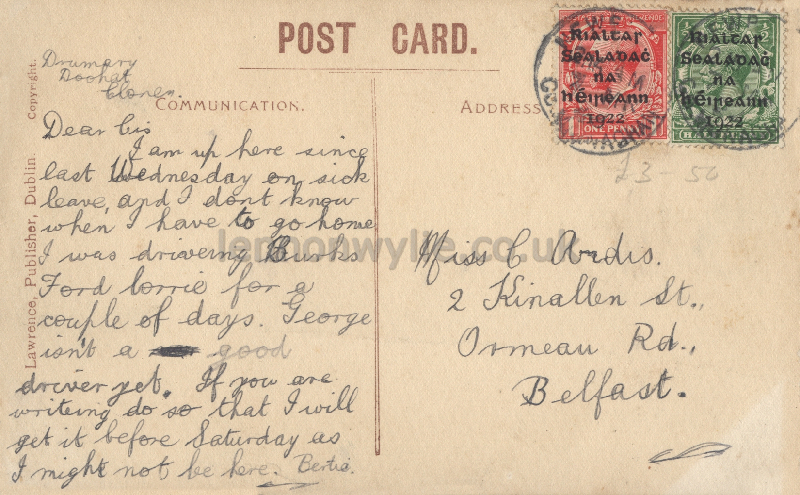 POST CARD.
Copyright.
Lawrence, Publisher, Dublin.
Drumary
Doohat
Clones
COMMUNICATION.
Dear Cis
I am up here since
last Wednesday on sick
leave, and I dont know
when I have to go home
I was driveing Burks
Ford lorrie for a
couple of days. George
isn't a good
driver yet. If you are
writeing do so that I will
get it before Saturday as
I might not be here. Bertie.
ADDRESS
Rialtas
Sealadaċ
na
hÉireann
1922
ONE PENNY
Rialtas
Sealadaċ
na
hÉireann
1922
£3 50
Miss C Ardis.
2 Kinallen St.,
Ormeau Rd.,
Belfast.
lennonwylie.co.uk